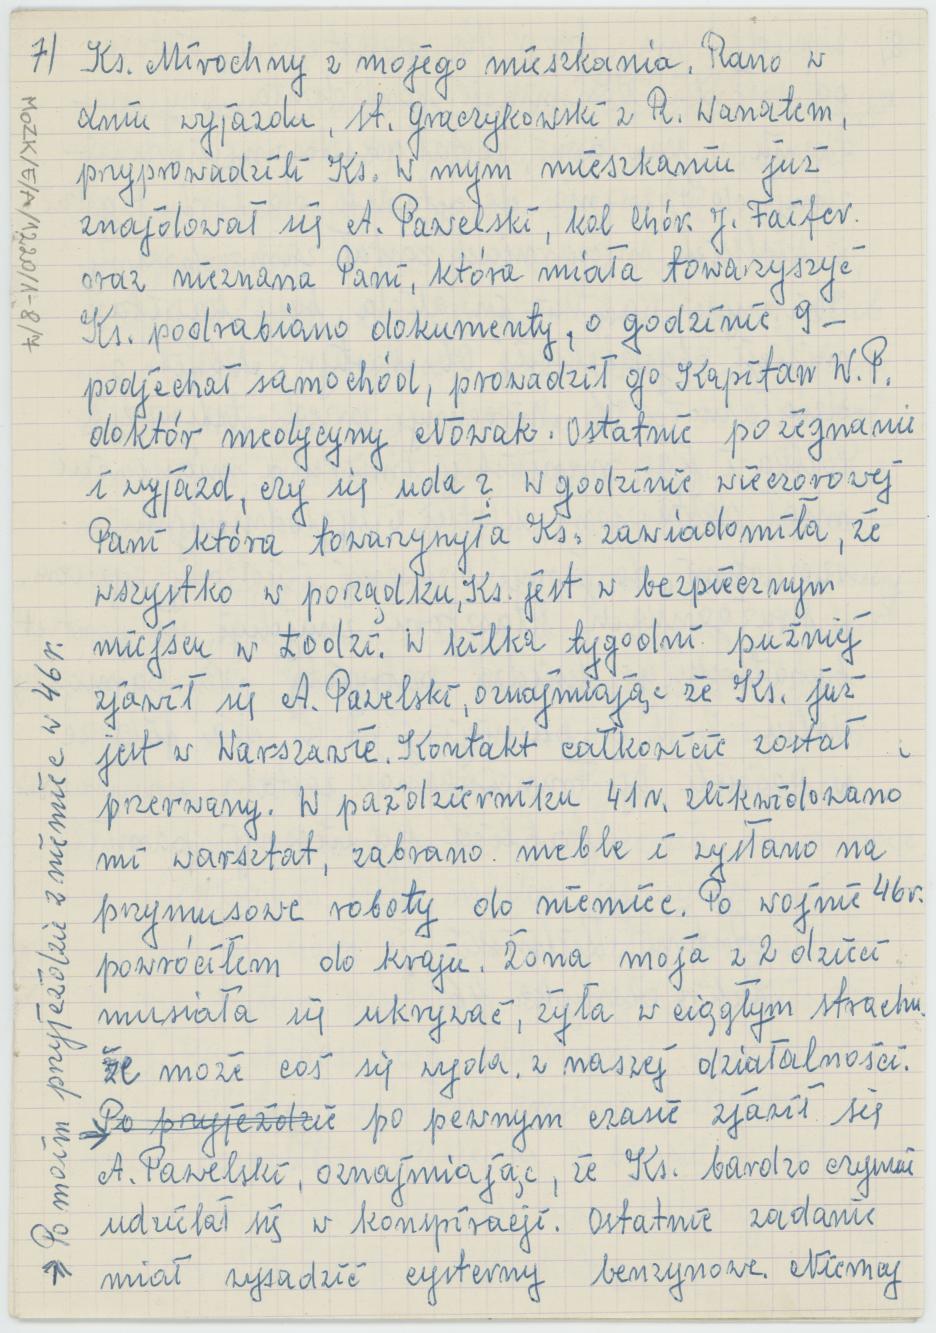 7/ Ks. Mirochny z mojego mieszkania. Rano w
dniu wyjazdu, st. Graczykowski z R. Wanatem,
pryprowadzili Ks. W mym mieszkaniu już
znajdował się A. Pawelski, kol chór. J. Faifer.
oraz nieznana Pani, która miała towarzyszyć
Ks. podrabiano dokumenty, o godzinie 9 –
podjechał samochód, prowadził go Kapitan W.P.
doktór medycyny Nowak. Ostatnie pożegnanie
i wyjazd, czy się uda? W godzinie wieczorowej
Pani która towarzyryła Ks. zawiadomiła, że
wszystko w porządku, Ks. jest w bezpiecznym
miejscu w Łodzi. W kilka tygodni puźniej
zjawił się A. Pawelski, oznajmiając że Ks. już
jest w Warszawie. Kontakt całkowicie został
przerwany. W październiku 41r. zlikwidowano
mi warsztat, zabrano meble i wysłano na
prymusowe roboty do niemiec. Po wojnie 46r.
powróciłem do kraju. Żona moja z 2 dzieci
musiała się ukrywać, żyła w ciągłym strachu.
że może coś się wyda. z naszej działalności.
Po pryjeździe po pewnym czasie zjawił się
A. Pawelski, oznajmiając, że Ks. bardzo czynnie
udzielał się w konspiracji. Ostatnie zadanie
miał wysadzić cysterny benzynowe. Niemcy
→ Po moim pryjeździe z niemiec w 46r.
MOZK/E/A/1220/1-8/7